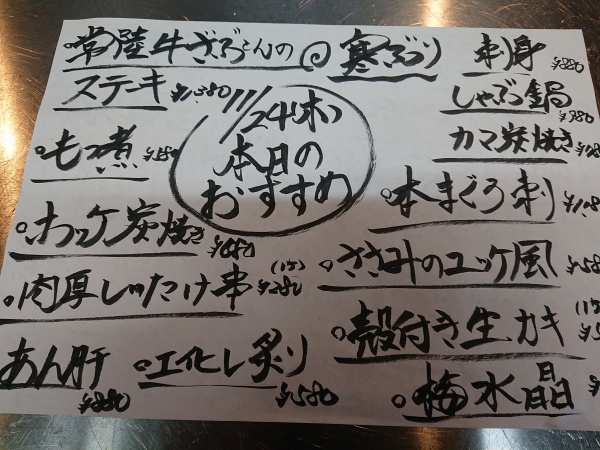 常陸牛ざぶとんの
ステーキ ¥1,380
11/24(木)
本日の
おすすめ
寒ぶり 刺身 ¥880
しゃぶ鍋 ¥980
カマ炭焼き
もつ煮
ホッケ炭焼き ¥680
肉厚しいたけ串 (1ケ) ¥280
あん肝 ¥880
エイヒレ炙り ¥580
本まぐろ刺
ささみのユッケ風
殻付き生カキ
梅水晶